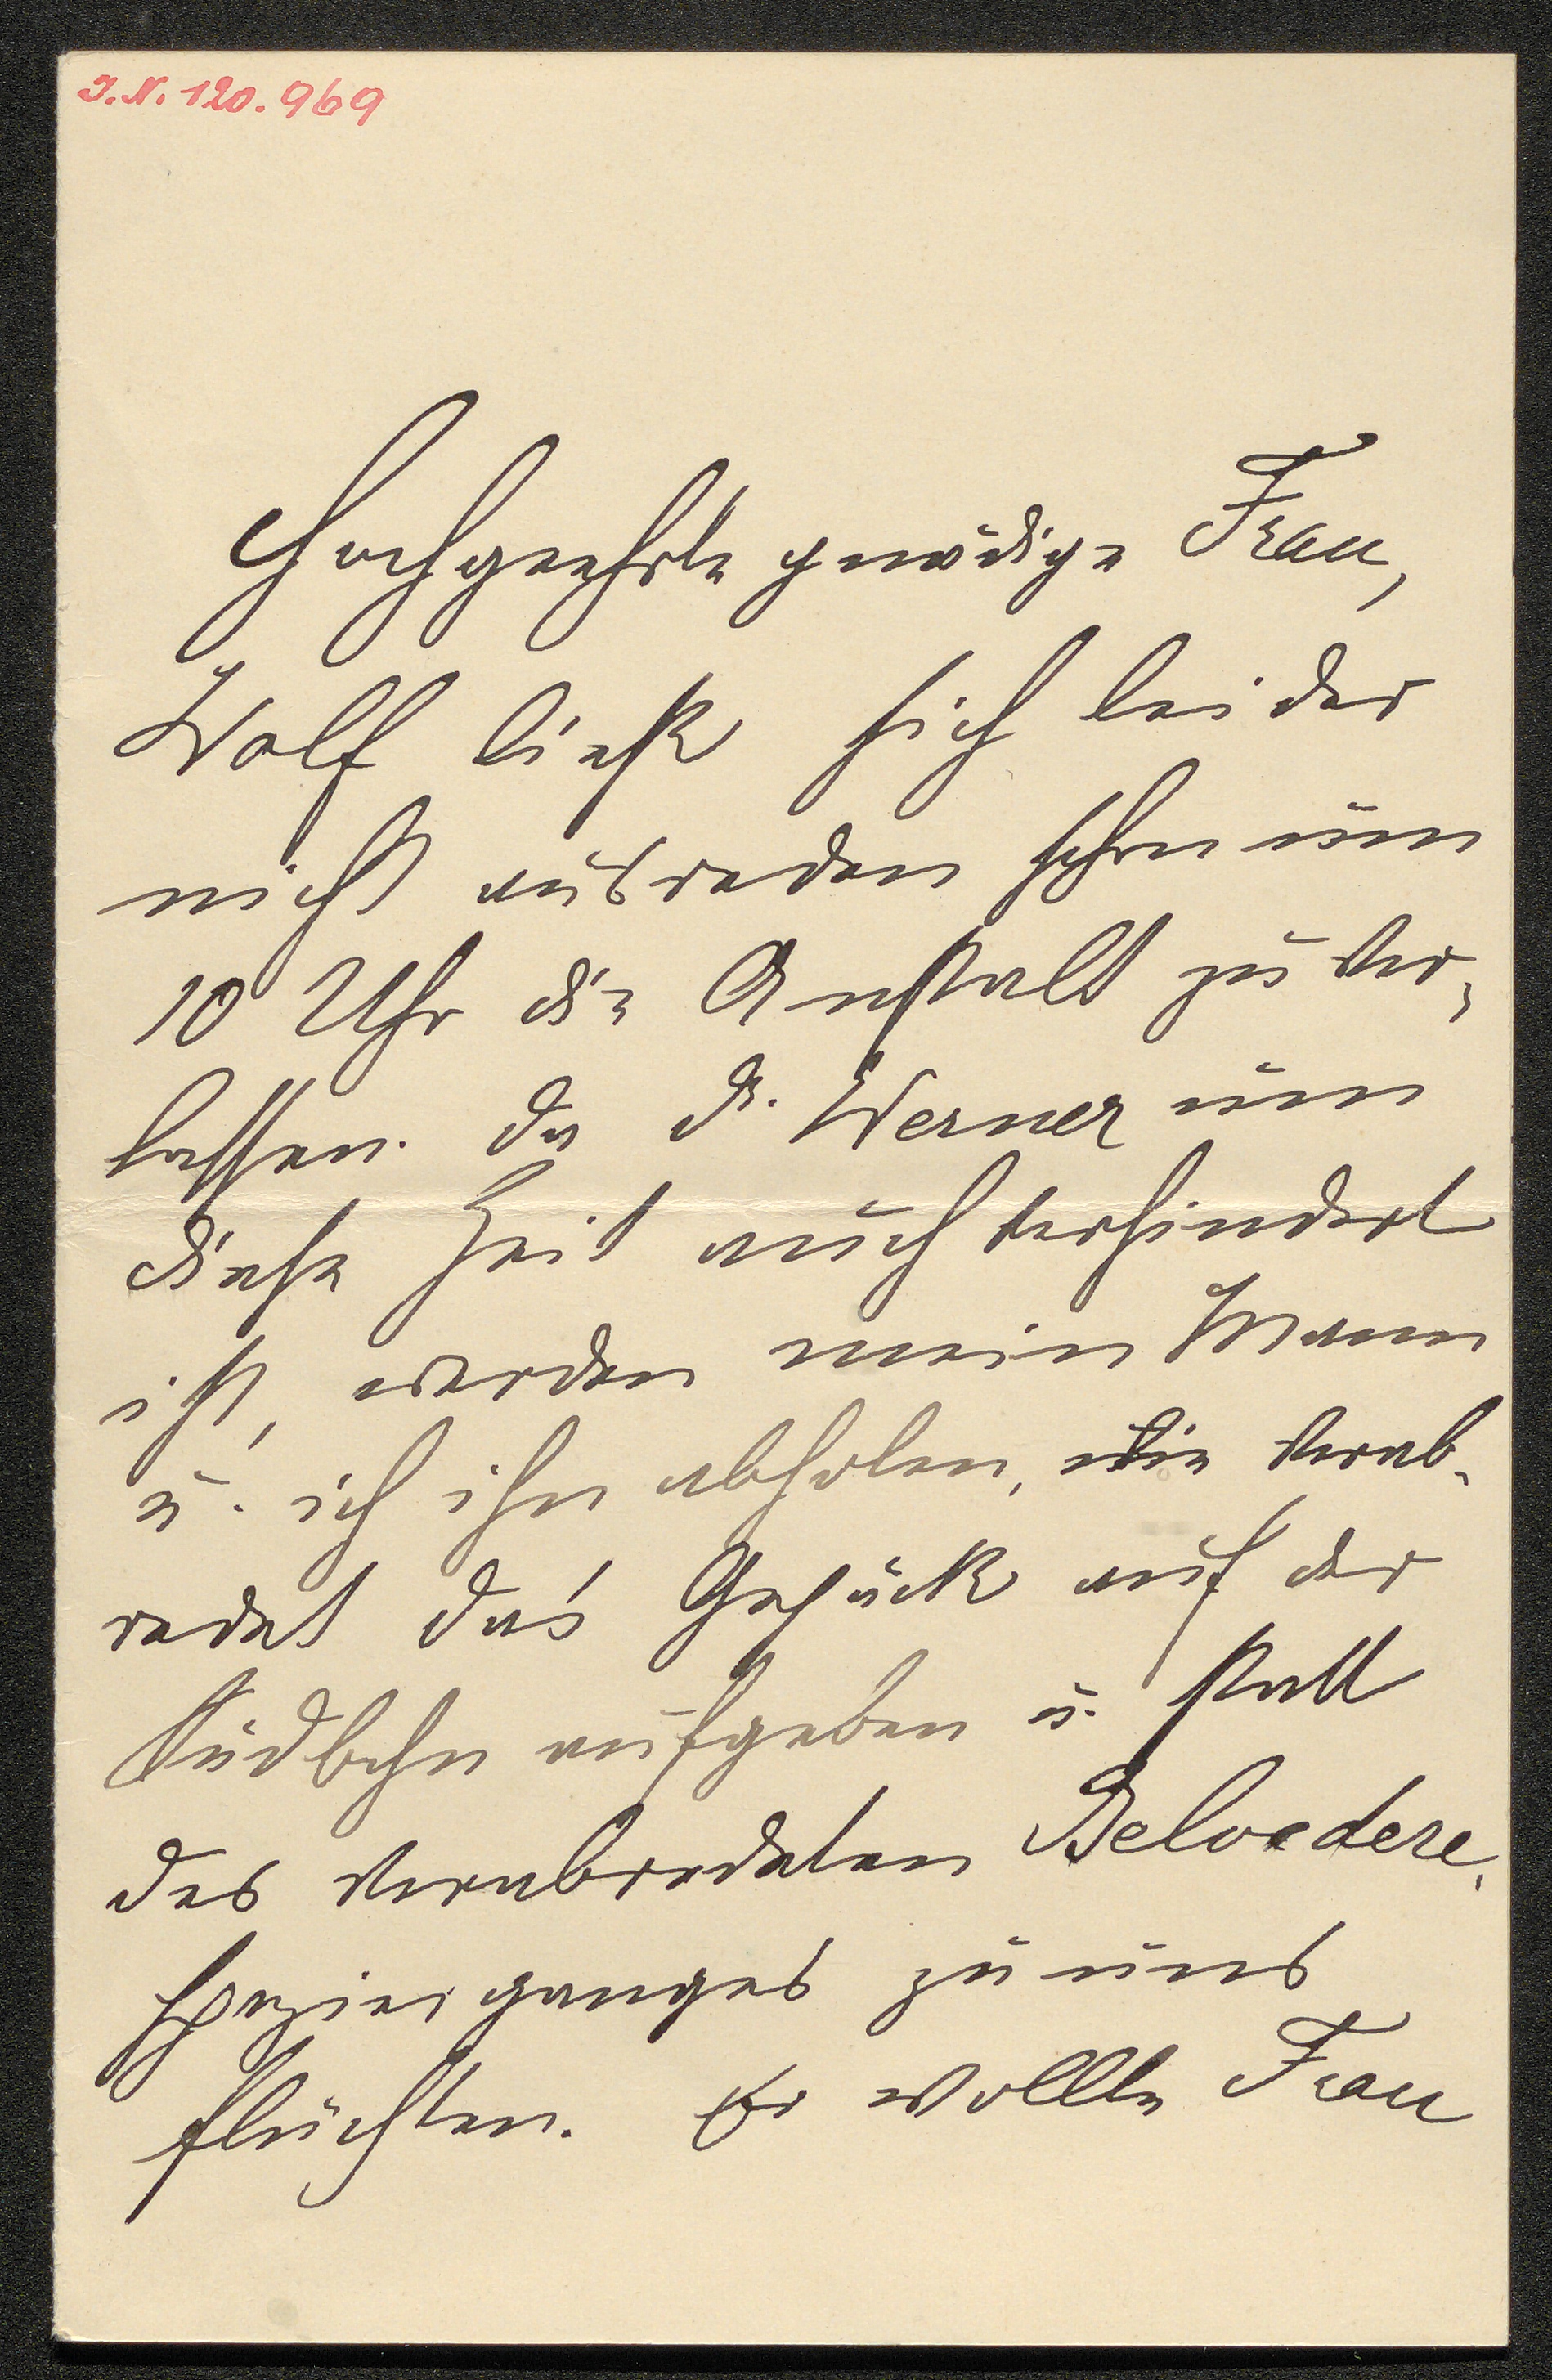 I.N. 120.969
Hochgeehrte gnädige Frau,
Wolf ließ sich leider
nicht ausreden schon um
10 Uhr die Anstalt zu ver-
lassen. Da Dr. Werner um
diese Zeit auch verhindert
ist, werden mein Mann
u. ich ihn abholen, wie verab-
redet das Gepäck auf der
Südbahn aufgeben u. statt
des verabredeten Belvedere-
spazierganges zu uns
flüchten. Er wollte Frau